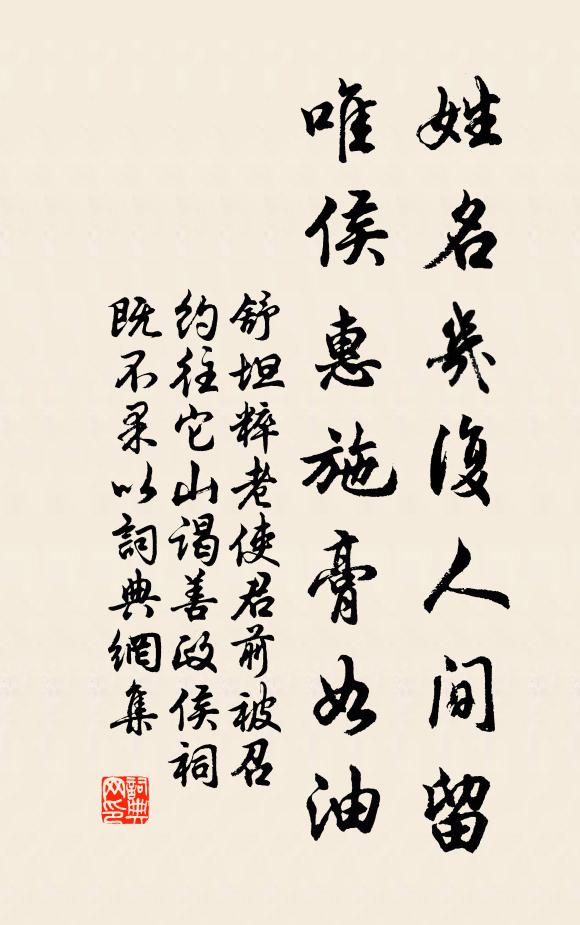 姓名幾復人間留
唯侯惠施膏如油
舒坦粹老使君前被召
約往它山謁善政侯祠
既不果以詞典網集
詞典網印